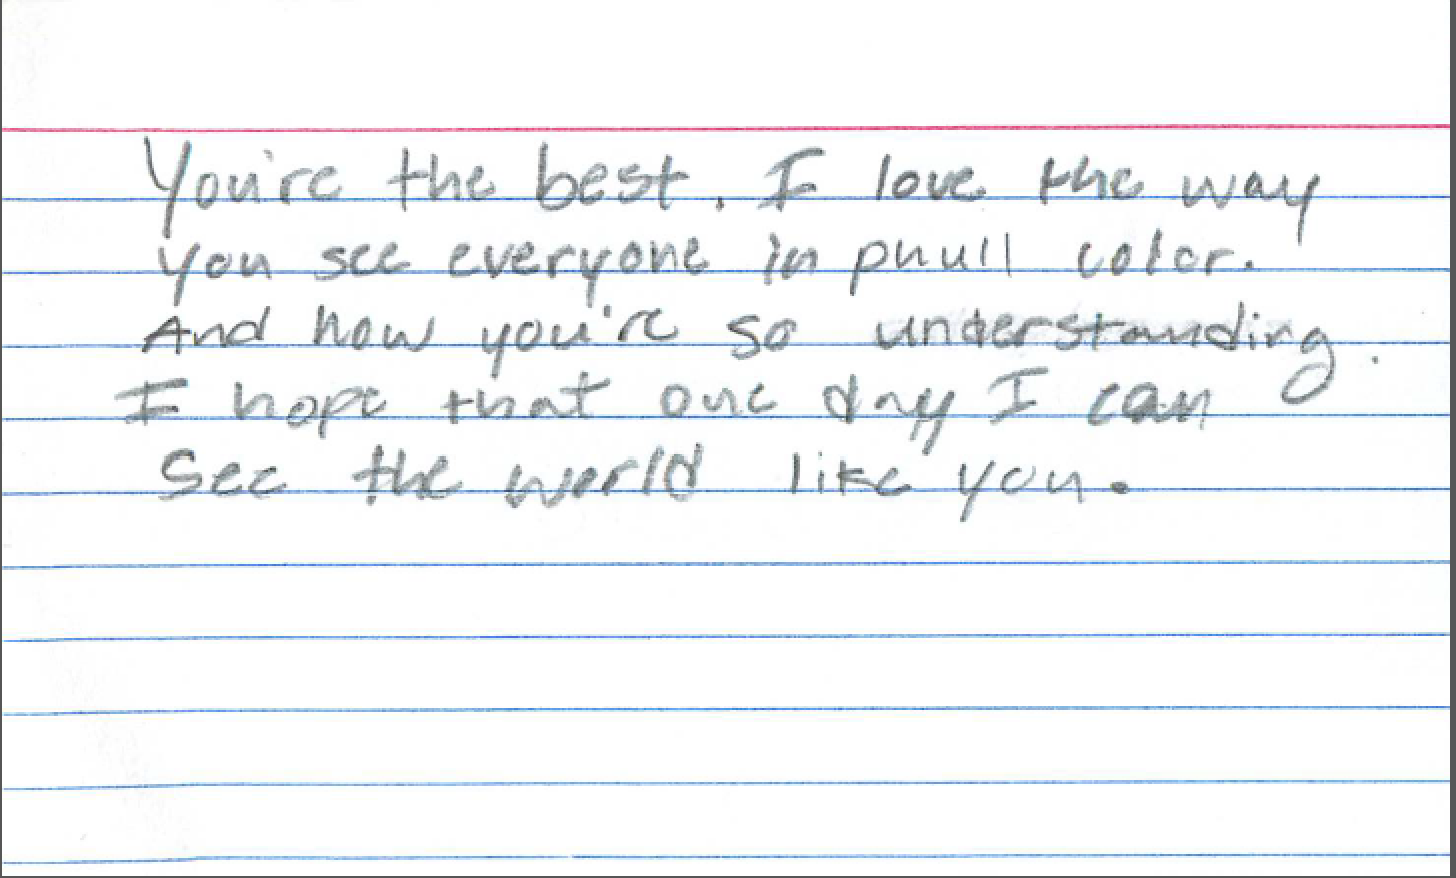 You're the best. I love the way
you see everyone in phull color.
And how you're so understanding.
I hope that one day I can
see the world like you.